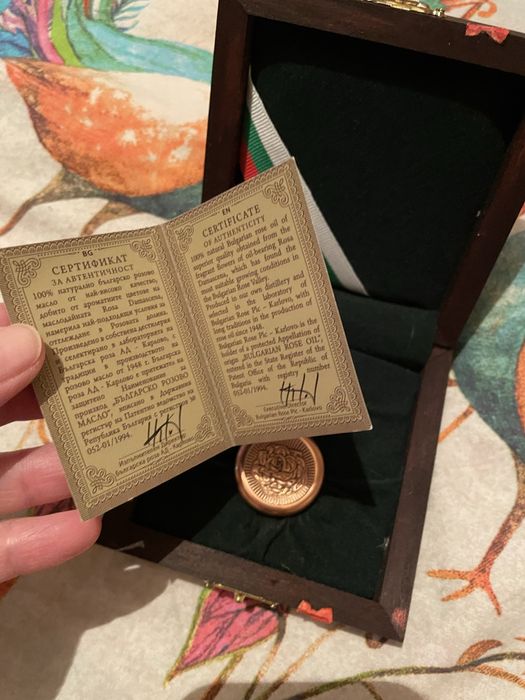 BG
СЕРТИФИКАТ
ЗА АВТЕНТИЧНОСТ
100% натурално българско розово
масло от най-високо качество,
добито от ароматните цветове на
маслодайната Rosa Damascena,
намерила най-подходящи условия за
отглеждане в Розовата долина.
Произведено в собствена дестилерия
и селектирано в лабораторията на
Българска роза АД - Карлово, с
традиции в производството на
розово масло от 1948 г. Българска
роза АД - Карлово е притежател на
защитено Наименование за
произход „БЪЛГАРСКО РОЗОВО
МАСЛО", вписано в Държавния
регистър на Патентно ведомство на
Република България с регистров №
052-01/1994.
Изпълнителен директор
Българска роза АД - Карлово
EN
CERTIFICATE
OF AUTHENTICITY
100% natural Bulgarian rose oil of
superior quality obtained from the
fragrant flowers of oil-bearing Rosa
Damascena, which has found the
most suitable growing conditions in
the Bulgarian Rose Valley.
Produced in our own distillery and
selected in the laboratory of
Bulgarian Rose Plc - Karlovo, with
long traditions in the production of
rose oil since 1948.
Bulgarian Rose Plc - Karlovo is the
holder of a protected Appellation of
origin „BULGARIAN ROSE OIL",
entered in the State Register of the
Patent Office of the Republic of
Bulgaria with registry number
052-01/1994.
Executive Director
Bulgarian Rose Plc - Karlovo